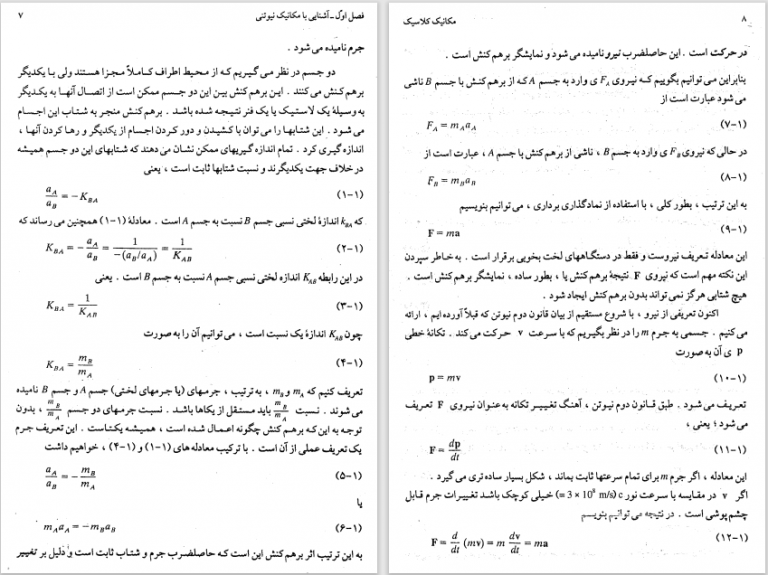 فصل اول ـ آشنایی با مکانیک نیوتنی ۷
جرم نامیده می شود .
دو جسم در نظر می گیریم که از محیط اطراف کاملاً مجزا هستند ولی با یکدیگر
برهم کنش می کنند . این برهم کنش بین این دو جسم ممکن است از اتصال آنها به یکدیگر
به وسیلهٔ یک لاستیک یا یک فنر نتیجه شده باشد . برهم کنش منجر به شتاب این اجسام
می شود . این شتابها را می توان با کشیدن و دور کردن اجسام از یکدیگر و رها کردن آنها ،
اندازه گیری کرد . تمام اندازه گیریهای ممکن نشان می دهند که شتابهای این دو جسم همیشه
در خلاف جهت یکدیگرند و نسبت شتابها ثابت است ، یعنی
a_A / a_B = − K_BA (۱−۱)
که k_BA اندازهٔ لختی نسبی جسم B نسبت به جسم A است . معادلهٔ (۱−۱) همچنین می رساند که
K_BA = − a_A / a_B = 1 / −(a_B/a_A) = 1 / K_AB (۲−۱)
در این رابطه K_AB اندازه لختی نسبی جسم A نسبت به جسم B است . یعنی
K_BA = 1 / K_AB (۳−۱)
چون K_AB اندازهٔ یک نسبت است ، می توانیم آن را به صورت
K_BA = m_B / m_A (۴−۱)
تعریف کنیم که m_A و m_B ، به ترتیب ، جرمهای (یا جرمهای لختی) جسم A و جسم B نامیده
می شوند . نسبت m_B / m_A باید مستقل از یکاها باشد . نسبت جرمهای دو جسم m_B / m_A ، بدون
توجه به این که برهم کنش چگونه اعمال شده است ، همیشه یکتاست . این تعریف جرم
یک تعریف عملی از آن است . با ترکیب معادله های (۱−۱) و (۴−۱) ، خواهیم داشت
a_A / a_B = − m_B / m_A (۵−۱)
یا
m_A a_A = − m_B a_B (۶−۱)
به این ترتیب اثر برهم کنش این است که حاصلضرب جرم و شتاب ثابت است و دلیل بر تغییر
۸ مکانیک کلاسیک
در حرکت است . این حاصلضرب نیرو نامیده می شود و نمایشگر برهم کنش است .
بنابراین می توانیم بگوییم که نیروی F_A ی وارد به جسم A که از برهم کنش با جسم B ناشی
می شود عبارت است از
F_A = m_A a_A (۷−۱)
در حالی که نیروی F_B ی وارد به جسم B ، ناشی از برهم کنش با جسم A ، عبارت است از
F_B = m_B a_B (۸−۱)
به این ترتیب ، بطور کلی ، با استفاده از نمادگذاری برداری ، می توانیم بنویسیم
F = ma (۹−۱)
این معادله تعریف نیروست و فقط در دستگاههای لخت بخوبی برقرار است . به خاطر سپردن
این نکته مهم است که نیروی F نتیجهٔ برهم کنش یا ، بطور ساده ، نمایشگر برهم کنش است .
هیچ شتابی هرگز نمی تواند بدون برهم کنش ایجاد شود .
اکنون تعریفی از نیرو ، با شروع مستقیم از بیان قانون دوم نیوتن که قبلاً آورده ایم ، ارائه
می کنیم . جسمی به جرم m را در نظر بگیریم که با سرعت v حرکت می کند . تکانهٔ خطی
p ی آن به صورت
p = mv (۱۰−۱)
تعریف می شود . طبق قانون دوم نیوتن ، آهنگ تغییر تکانه به عنوان نیروی F تعریف
می شود ؛ یعنی ،
F = dp / dt (۱۱−۱)
این معادله ، اگر جرم m برای تمام سرعتها ثابت بماند ، شکل بسیار ساده تری می گیرد .
اگر v در مقایسه با سرعت نور c (= 3 × 10⁸ m/s) خیلی کوچک باشد تغییرات جرم قابل
چشم پوشی است . در نتیجه می توانیم بنویسیم
F = d/dt (mv) = m dv/dt = ma (۱۲−۱)